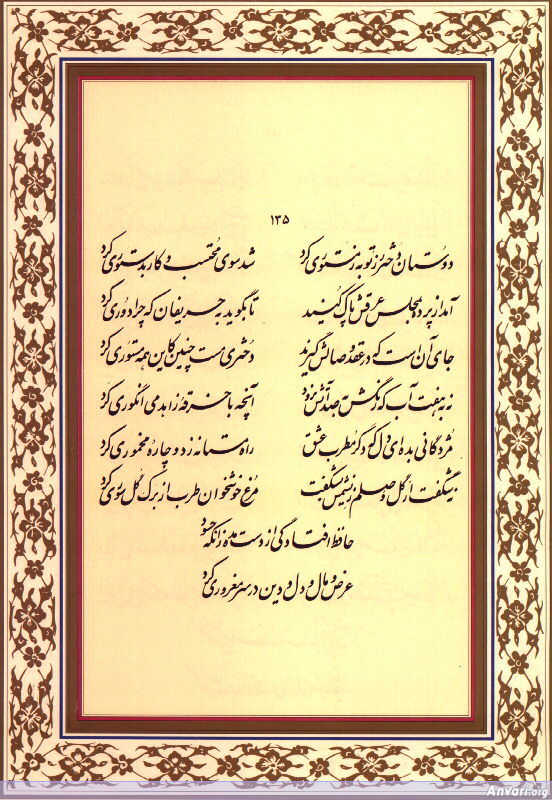 ۱۳۵
دوستان دختر رز توبه ز مستوری کرد شد سوی محتسب و کار بدستوری کرد
آمد از پرده بمجلس عرقش پاک کنید تا بگوید به حریفان که چرا دوری کرد
جای آن است که در عقد وصالش گیرند دختری مست چنین کاین همه مستوری کرد
نه به هفت آب که رنگش بصد آتش نرود آنچه با خرقه زاهد می انگوری کرد
مژدگانی بده ای دل که دگر مطرب عشق راه مستانه زد و چاره مخموری کرد
نشگفت ار گل وصلم ز نسیمش بشکفت مرغ خوشخوان طرب از برگ گل سوری کرد
حافظ افتادگی از دست مده زانکه حسود
عرض و مال و دل و دین در سر مغروری کرد
Anvari.org